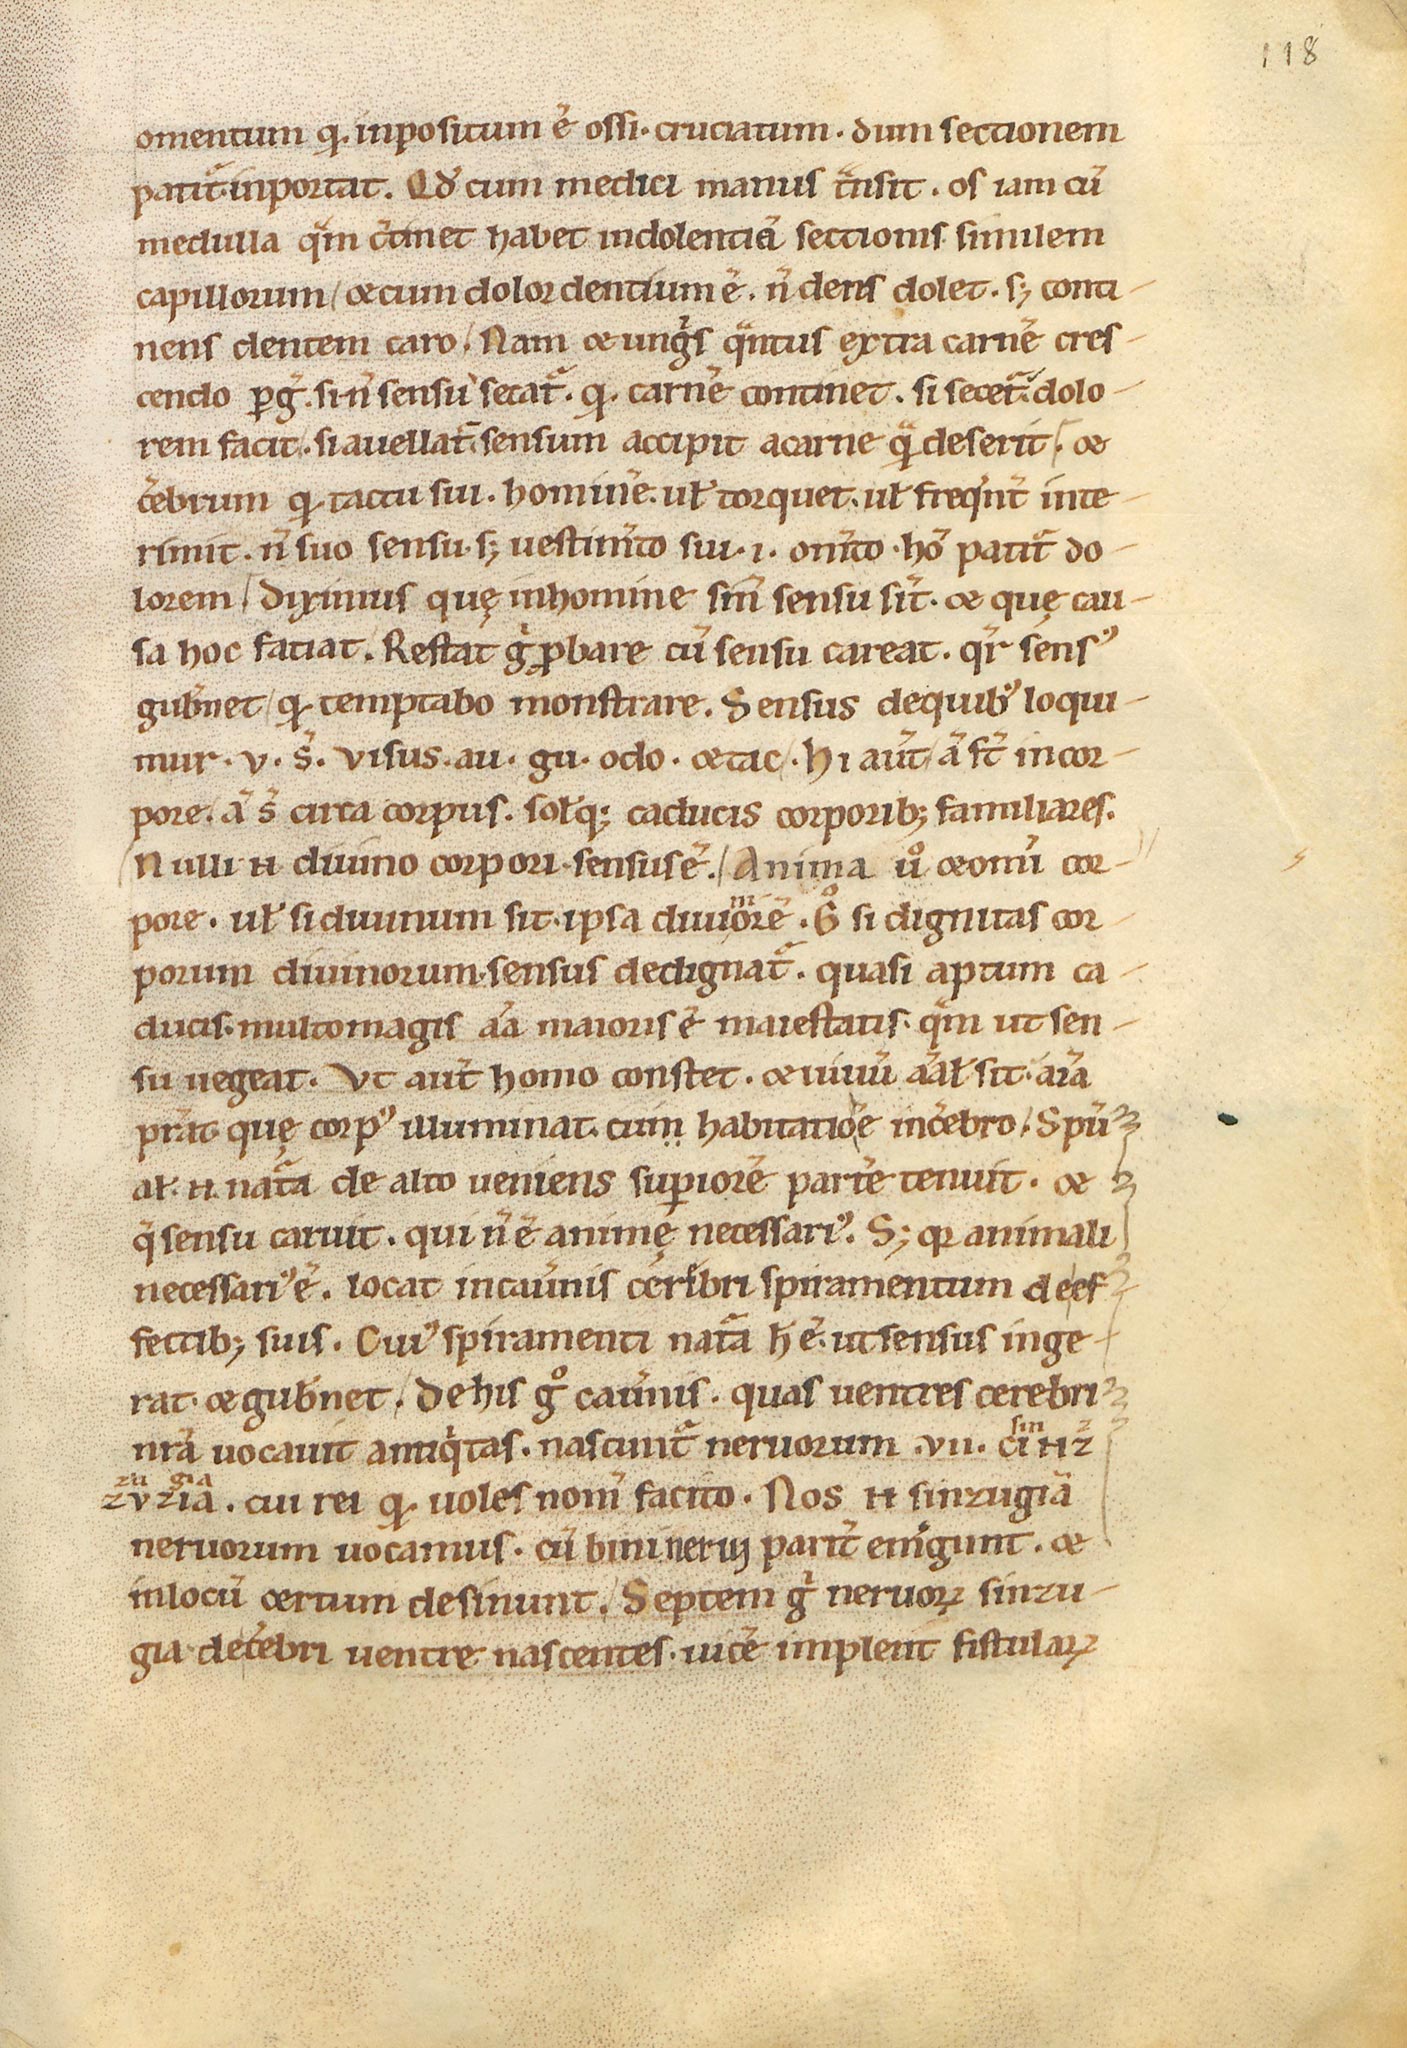 118
omentum q. inpositum ē ossi. cruciatum. dum sectionem
patit᷑. inportat. Qd̄ cum medici manus t̄nsit. os iam cū
medulla qᷓm c̄tinet habet indolentiā sectionis similem
capillorum / & cum dolor dentium ē. n̄ dens dolet. s; conti-
nens dentem caro / Nam & ungͥs qᷓntus extra carnē cres-
cendo ꝑgͥ. si n̄ sensu secat᷑. q. carnē continet. si secet᷑. dolo-
rem facit /. si auellat᷑. sensum accipit a carne qᷓ deserit /. &
c̄ebrum q. tactu sui. hominē. ul̄ torquet. ul̄ freqͥnt᷑ inte-
rimit. n̄ suo sensu. s; uestim̄to sui. i. om̄to. hō patit᷑ do-
lorem / diximus quę in homine sīn sensu sīt. & quę cau-
sa hoc fatiat / Restat gͥ ꝓbare cū sensu careat. qr̄ sensꝰ
gub̄net / q. temptabo monstrare. Sensus de quibꝰ loqui-
mur. v. s̄. visus. au. gu. odo. & tac /. hi aut̄ / ā st̄ in cor-
pore / ā s̄ circa corpus. sol̄q; caducis corporib; familiares.
/ Nulli n. diuino corpori. sensus ē. / Anima uͦ & omī cor-
pore. ul̄ si diuinum sit. ipsa diuiniorē. Gͦ si dignitas cor-
porum diuinorum. sensus dedignat᷑. quasi aptum ca-
ducis. multo magis aīa maioris ē maiestatis. qᷓm ut sen-
su uegeat. Vt aut̄ homo constet. & uiuū aīal̄ sit. aīa
p̄rat. quę corpꝰ illuminat. cum habitatiōe in c̄ebro / Spū
al̄. n. nat᷑a de alto ueniens supiorē partē tenuit. &
qͥ sensu caruit. qui n̄ ē animę necessariꝰ. S; qr animali
necessariꝰ ē. locat in cau̅nis cerebri spiramentum de ef
fectib; suis. Cuiꝰ spiramenti nat᷑a h̄ ē. ut sensus inge-
rat. & gub̄net / De his gͦ cau̅nis. quas uentres cerebri
nr̄a uocauit antiqͥtas. nascunt᷑ neruorum. vii. ci n z
sin
zu gia
zv zia. cui rei q. uoles nom̄ facito. Nos n sinzugiā
neruorum uocamus. cū bini nerui parit᷑ em̄gunt. &
in locū certum desinunt / Septem gͥ neruoꝝ sinzu-
gia. de c̄ebri uentre nascentes. uicē implent fistulaꝝ